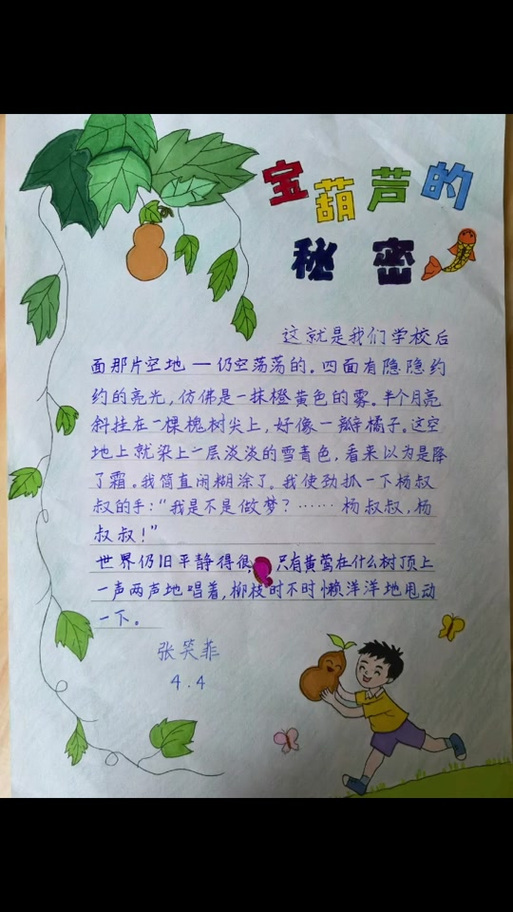 宝葫芦的
秘密
这就是我们学校后
面那片空地——仍空荡荡的。四面有隐隐约
约的亮光，仿佛是一抹橙黄色的雾。半个月亮
斜挂在一棵槐树尖上，好像一瓣橘子。这空
地上就染上一层淡淡的雪青色，看来以为是降
了霜。我简直闹糊涂了。我使劲抓一下杨叔
叔的手：“我是不是做梦？……杨叔叔，杨
叔叔！”
世界仍旧平静得很，只有黄莺在什么树顶上
一声两声地唱着，柳枝时不时懒洋洋地甩动
一下。
张笑菲
4.4